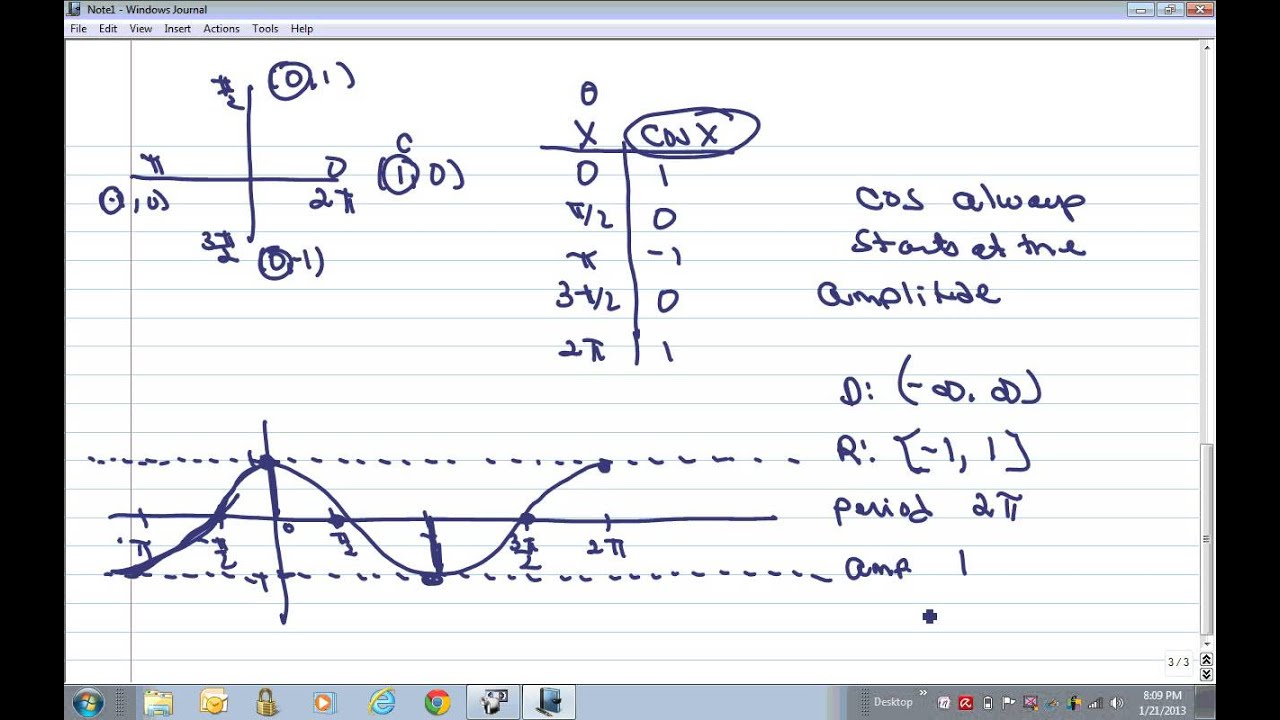 Note1 - Windows Journal
File Edit View Insert Actions Tools Help
π/2 (0, 1)
π 0 C (1, 0)
2π
, 0)
3π/2 (0 -1)
θ
X cos X
0 1
π/2 0
π -1
3π/2 0
2π 1
cos always
starts at the
amplitude
D: (-∞, ∞)
R: [-1, 1]
period 2π
amp 1
1
0
-π -π/2 π/2 3π/2 2π
-1
3 / 3
Desktop » 8:09 PM
1/21/2013